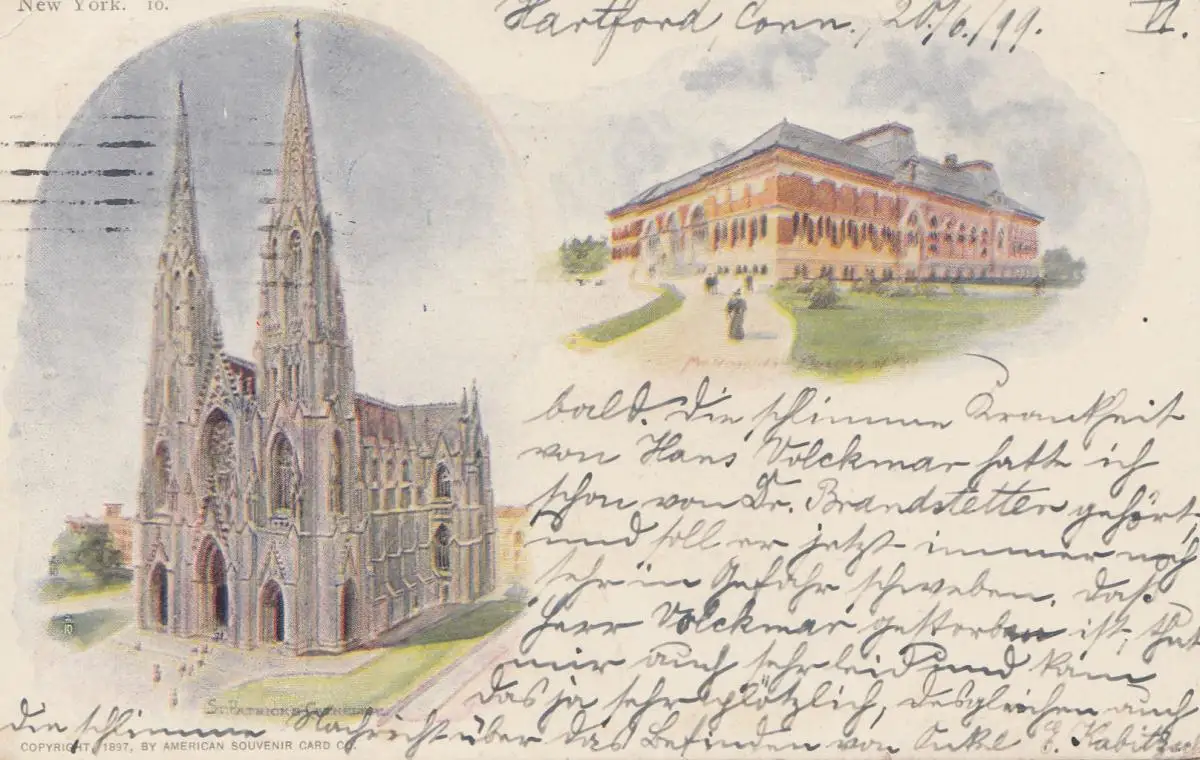 New York. 10.
Hartford, Conn., 20./6./99. II.
bald. Die schlimme Krankheit
von Hans Volckmar hatte ich
schon von Dr. Brandstetter gehört
und soll er jetzt immer noch
sehr in Gefahr schweben. Daß
Herr Volckmar gestorben ist, thut
mir auch sehr leid und kam
das ja sehr plötzlich, desgleichen auch
die schlimme Nachricht über das Befinden von Onkel
St. Patrick's Cathedral
COPYRIGHT, 1897, BY AMERICAN SOUVENIR CARD CO.